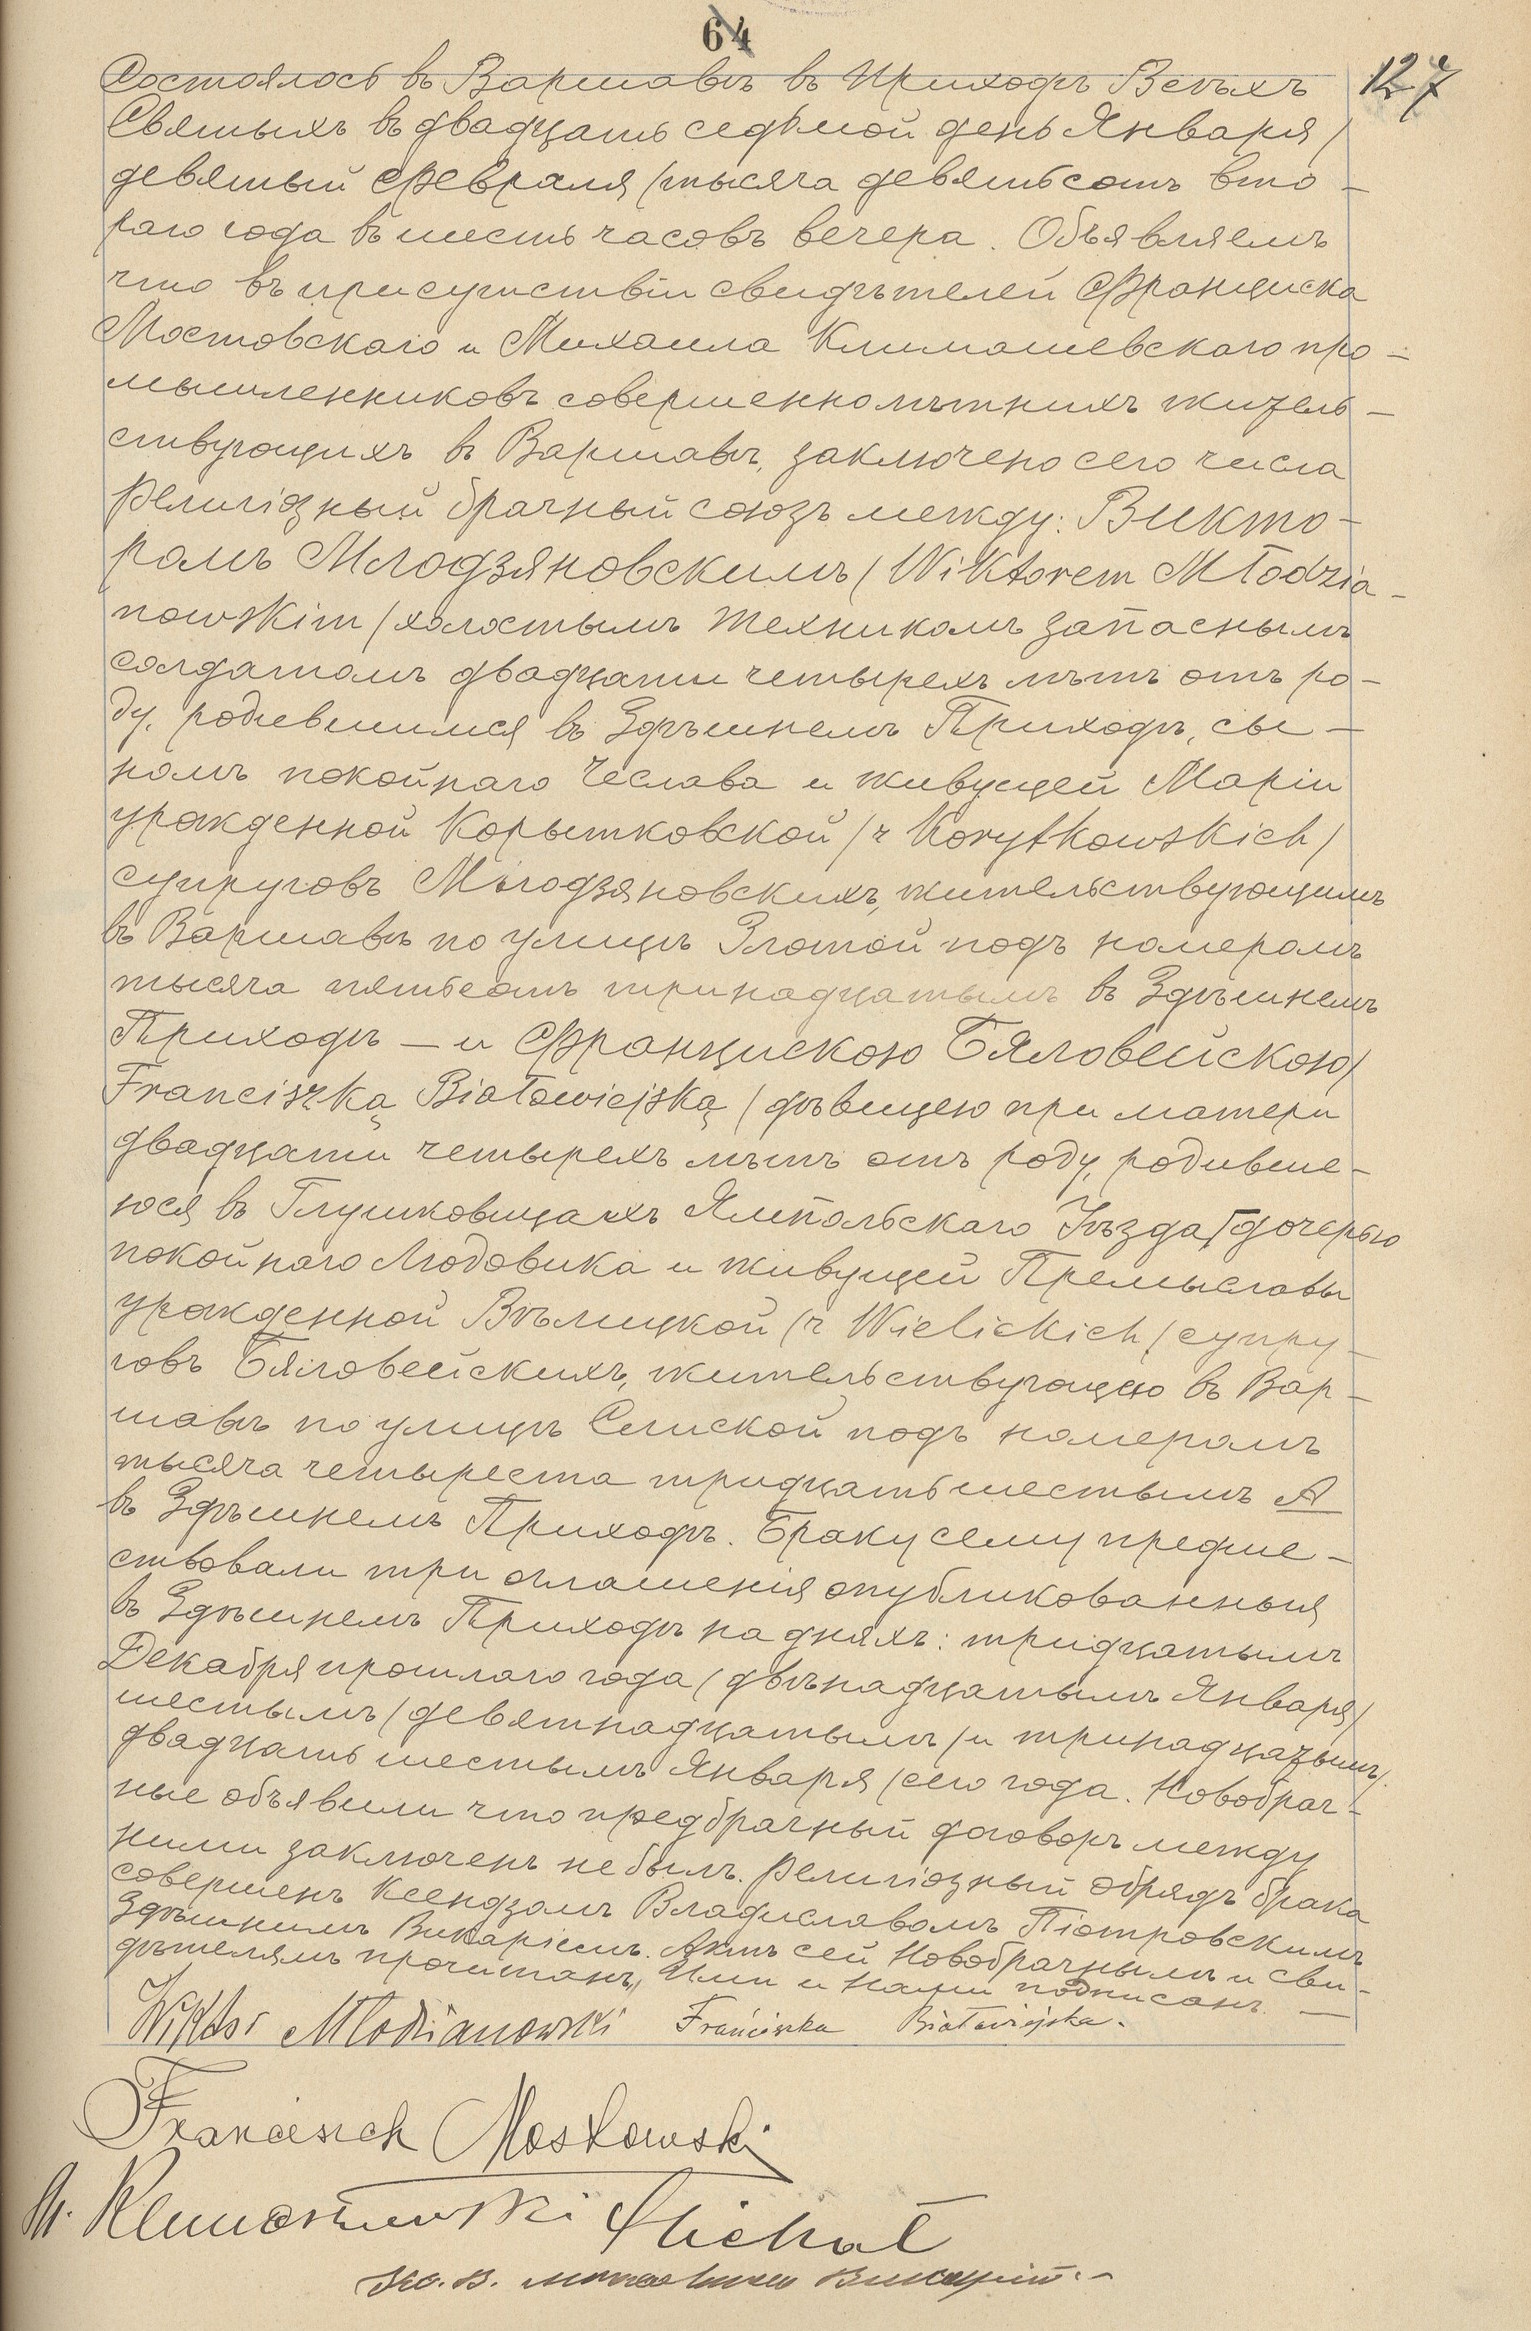 64
127
Состоялось въ Варшавѣ въ Приходѣ Всѣхъ
Святыхъ въ двадцать седьмой день Января /
девятый Февраля / тысяча девятьсотъ вто-
раго года въ шесть часовъ вечера. Объявляемъ
что въ присутствіи свидѣтелей Франциска
Мостовскаго и Михаила Климашевскаго про-
мышленниковъ совершеннолѣтнихъ житель-
ствующихъ въ Варшавѣ, заключено сего числа
религіозный брачный союзъ между: Викто-
ромъ Млодзяновскимъ / Wiktorem Młodzia-
nowskim / холостымъ техникомъ запаснымъ
солдатомъ двадцати четырехъ лѣтъ отъ ро-
ду, родившимся въ Здѣшнемъ Приходѣ, сы-
номъ покойнаго Чеслава и живущей Маріи
урожденной Корытковской / z Korytkowskich /
супруговъ Млодзяновскихъ, жительствующимъ
въ Варшавѣ по улицѣ Злотой подъ номеромъ
тысяча пятьсотъ тринадцатымъ въ Здѣшнемъ
Приходѣ — и Францискою Бяловейскою /
Franciszką Białowiejską / дѣвицею при матери
двадцати четырехъ лѣтъ отъ роду, родивше-
юся въ Глушковцахъ Ямпольскаго Уѣзда, дочерью
покойнаго Людовика и живущей Премыславы
урожденной Вѣлицкой / z Wielickich / супру-
говъ Бяловейскихъ, жительствующею въ Вар-
шавѣ по улицѣ Слиской подъ номеромъ
тысяча четыреста тридцать шестымъ А
въ Здѣшнемъ Приходѣ. Браку сему предше-
ствовали три оглашенія опубликованныя
въ Здѣшнемъ Приходѣ на дняхъ: тридцатымъ
Декабря прошлаго года / двѣнадцатымъ Января /
шестымъ / девятнадцатымъ / и тринадцатымъ /
двадцать шестымъ Января / сего года. Новобрач-
ные объявили что предбрачный договоръ между
ними заключенъ не былъ. Религіозный обрядъ брака
совершенъ Ксендзомъ Владиславомъ Піотровскимъ
Здѣшнимъ Викаріемъ. Актъ сей Новобрачнымъ и сви-
дѣтелямъ прочитанъ, Ими и Нами подписанъ. —
Wiktor Młodzianowski Franciszka Białowiejska.
Franciszek Mostowski
M. Klimaszewski Michał
Кс. В. Викарій.